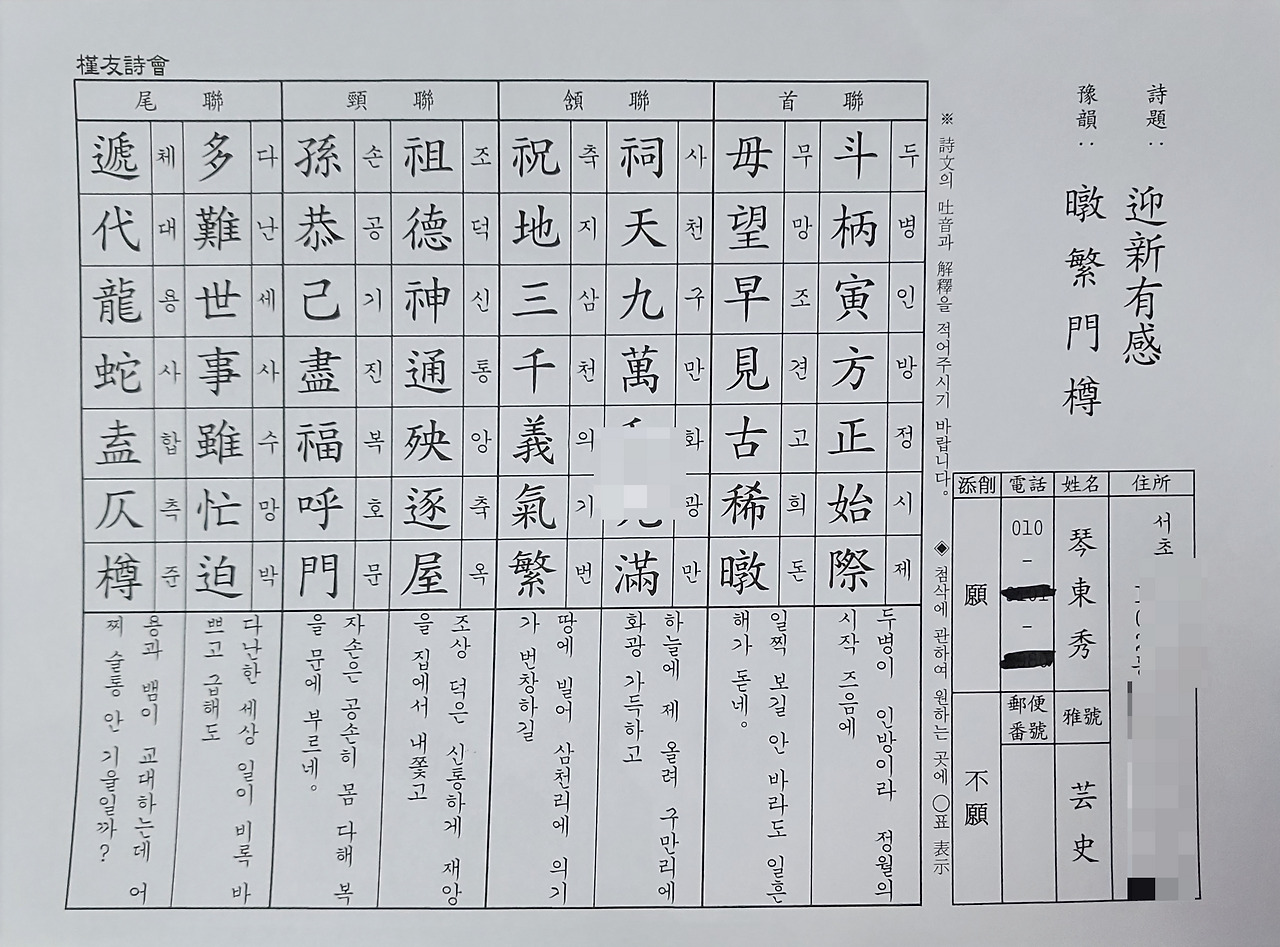 槿友詩會
詩題: 迎新有感
豫韻: 暾 繁 門 樽
※ 詩文의 吐音과 解釋을 적어주시기 바랍니다. ◈ 첨삭에 관하여 원하는 곳에 ○표 表示
住所
서초
姓名
琴東秀
雅號
芸史
電話
010
-
-
郵便
番號
添削
願
不願
首聯
斗柄寅方正始際
두병인방정시제
두병이 인방이라 정월의
시작 즈음에
毋望早見古稀暾
무망조견고희돈
일찍 보길 안 바라도 일흔
해가 돋네。
頷聯
祠天九萬 滿
사천구만화광만
하늘에 제 올려 구만리에
화광 가득하고
祝地三千義氣繁
축지삼천의기번
땅에 빌어 삼천리에 의기
가 번창하길
頸聯
祖德神通殃逐屋
조덕신통앙축옥
조상 덕은 신통하게 재앙
을 집에서 내쫓고
孫恭己盡福呼門
손공기진복호문
자손은 공손히 몸 다해 복
을 문에 부르네。
尾聯
多難世事雖忙迫
다난세사수망박
다난한 세상 일이 비록 바
쁘고 급해도
遞代龍蛇盍仄樽
체대용사합측준
용과 뱀이 교대하는데 어
찌 술통 안 기울일까?